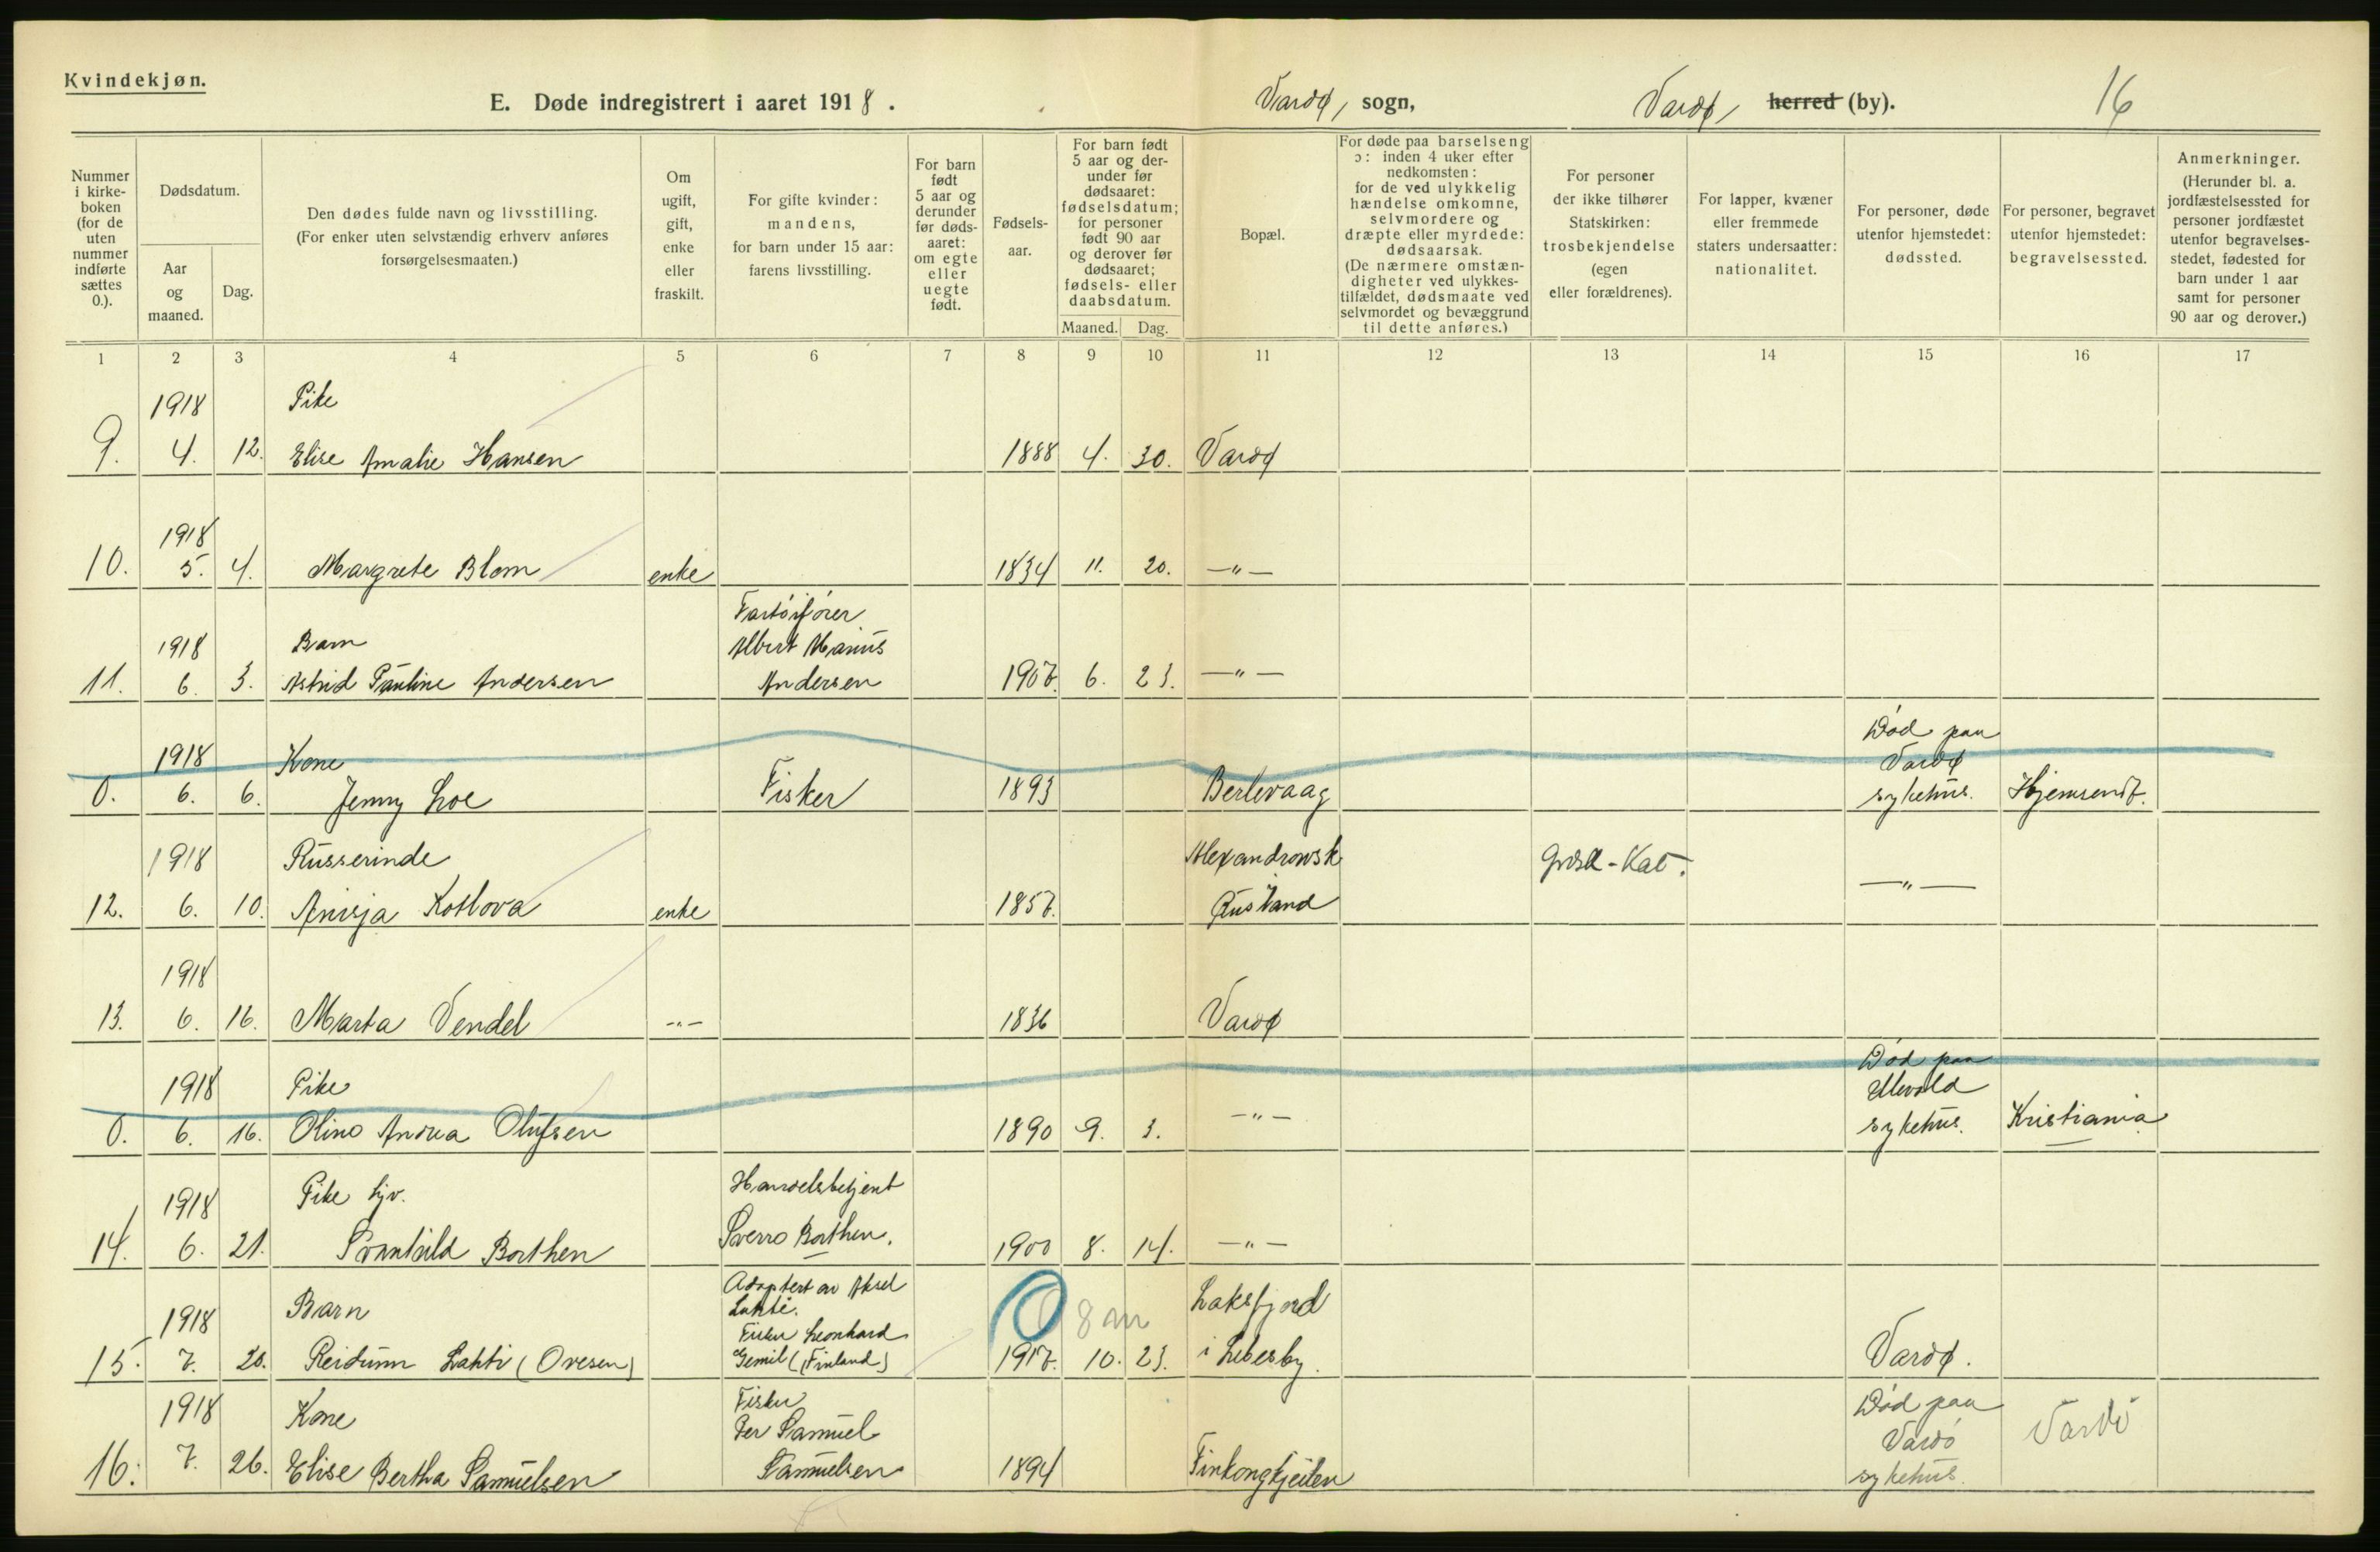 Kvindekjøn.
E. Døde indregistrert i aaret 1918.
Vardø, sogn,
Vardø, herred (by).
16
Nummer i kirke-boken (for de uten nummer indførte sættes 0.).
Dødsdatum.
Aar og maaned.
Dag.
Den dødes fulde navn og livsstilling.
(For enker uten selvstændig erhverv anføres forsørgelsesmaaten.)
Om ugift, gift, enke eller fraskilt.
For gifte kvinder: mandens, for barn under 15 aar: farens livsstilling.
For barn født 5 aar og derunder før døds-aaret: om egte eller uegte født.
Fødsels-aar.
For barn født 5 aar og der-under før dødsaaret: fødselsdatum; for personer født 90 aar og derover før dødsaaret; fødsels- eller daabsdatum.
Maaned.
Dag.
Bopæl.
For døde paa barselseng ɔ: inden 4 uker efter nedkomsten: for de ved ulykkelig hændelse omkomne, selvmordere og dræpte eller myrdede: dødsaarsak. (De nærmere omstæn-digheter ved ulykkes-tilfældet, dødsmaate ved selvmordet og bevæggrund til dette anføres.)
For personer der ikke tilhører Statskirken: trosbekjendelse (egen eller forældrenes).
For lapper, kvæner eller fremmede staters undersaatter: nationalitet.
For personer, døde utenfor hjemstedet: dødssted.
For personer, begravet utenfor hjemstedet: begravelsessted.
Anmerkninger. (Herunder bl. a. jordfæstelsessted for personer jordfæstet utenfor begravelses-stedet, fødested for barn under 1 aar samt for personer 90 aar og derover.)
1 2 3 4 5 6 7 8 9 10 11 12 13 14 15 16 17
1918 Pike
9. 4. 12. Elise Amalie Hansen 1888 4. 30. Vardø
1918
10. 5. 4. Margrete Blom enke 1834 11. 20. —"—
Fartöiförer
1918 Barn Albert Marius
11. 6. 3. Astrid Pauline Andersen Andersen 1907. 6. 23. —"—
Död paa
1918 Kone Vardø
0. 6. 6. Jenny Loe Fisker 1893 Berlevaag sykehus. Hjemsendt.
1918 Russerinde Alexandrowsk Græsk-Kat.
12. 6. 10. Anisja Koslova enke 1857. Rusland —"—
1918
13. 6. 16. Marta Vendel —"— 1836 Vardø
Död paa
1918 Pike Ullevold
0. 6. 16. Olino Andrea Olufsen 1890 9. 3. —"— sykehus. Kristiania
1918 Pike hjv. Handelsbetjent
14. 6. 21. Svanhild Borthen Sverro Borthen. 1900 8. 14. —"—
Adoptert av Aksel
Lahti.
1918 Barn Fisker Leonhard 0 8 m Laksfjord
15. 7. 20. Reidunn Lahti (Ovesen) Gemil (Finland) 1917. 10. 23. i Lebesby. Vardø.
1918 Kone Fisker Död paa
Per Samuel Vardö Vardö
16. 7. 26. Elise Bertha Samuelsen Samuelsen 1894 Finkongkjeilen sykehus.